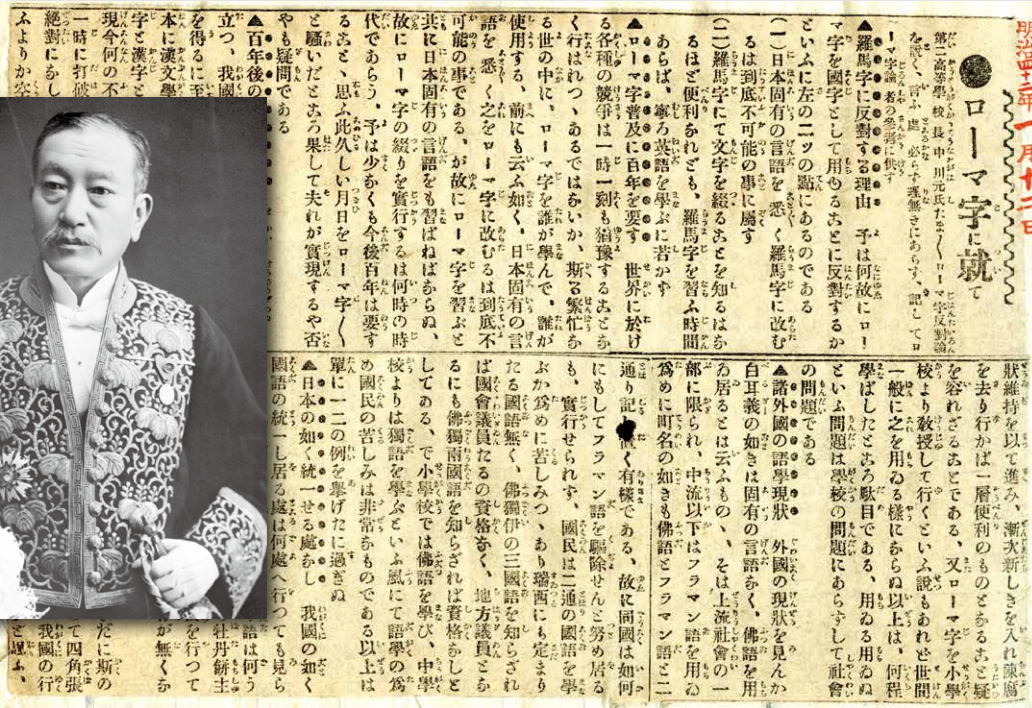 ●ローマ字に就て
第二高等學校長中川元氏たま〱ローマ字反對論
を説く、言ふ處必らず理無きにあらず、記してロ
ーマ字論者の參考に供す
▲羅馬字に反對する理由　予は何故にロー
マ字を國字として用ゐることに反對するか
といふに左の二ッの點にあるのである
(一)日本固有の言語を悉く羅馬字に改む
るは到底不可能の事に屬す
(二)羅馬字にて文字を綴ることを知るはな
るほど便利なれども、羅馬字を習ふ時間
あらば、寧ろ英語を學ぶに若かず
▲ローマ字普及に百年を要す　世界に於け
る各種の競爭は一時一刻も猶豫することな
く行はれつゝあるではないか、斯る繁忙な
る世の中に、ローマ字を誰が學んで、誰が
使用する、前にも云ふ如く、日本固有の言
語を悉く之をローマ字に改むるは到底不
可能の事である、が故にローマ字を習ふと
共に日本固有の言語も習はねばならぬ、
故にローマ字の綴りを實行するは何時の時
代であらう、予は少なくも今後百年は要す
ることゝ思ふ此久しい月日をローマ字〱
と騷いだところ果して夫れが實現するや否
やも疑問である
▲百年後の
立つ、我國
を得るに至
本に漢文學
字と漢字と
現今何の不
一時に打破
絶對に
ふよりか空
狀維持を以て進み、漸次新しきを入れ陳腐
を去り行かば一層便利のものとなること疑
を容れざることである、又ローマ字を小學
校より教授して行くといふ說もあれど世間
一般に之を用ゐる樣にならぬ以上は、何程
學ばしたところ駄目である、用ゐる用ゐぬ
といふ問題は學校の問題にあらずして社會
の問題である
▲諸外國の語學現狀　外國の現狀を見んか
白耳義の如きは固有の言語なく、佛語を用
ゐ居るとは云ふものゝ、そは上流社會の一
部に限られ、中流以下はフラマン語を用ゐ
爲めに町名の如きも佛語とフラマン語と二
通り記し置く有樣である、故に同國は如何
にもしてフラマン語を驅除せんと努め居る
も、實行せられず、國民は二通の國語を學
ぶが爲めに苦しみつゝあり瑞西にも定まり
たる國語無く、佛獨伊の三國語を知らざれ
ば國會議員たるの資格なく、地方議員とな
るにも佛獨兩國語を知らざれば資格なしと
してある、で小學校では佛語を學び、中學
校よりは獨語を學ぶといふ風にて語學の爲
め國民の苦しみは非常なものである以上は
單に一二の例を擧げたに過ぎぬ
▲日本の如く統一せる處なし　我國の如く
國語の統一し居る處は何處へ行つても見ら
語は何う
牡丹餅主
を行つて
が無くな
だに斯の
て四角張
我國の行